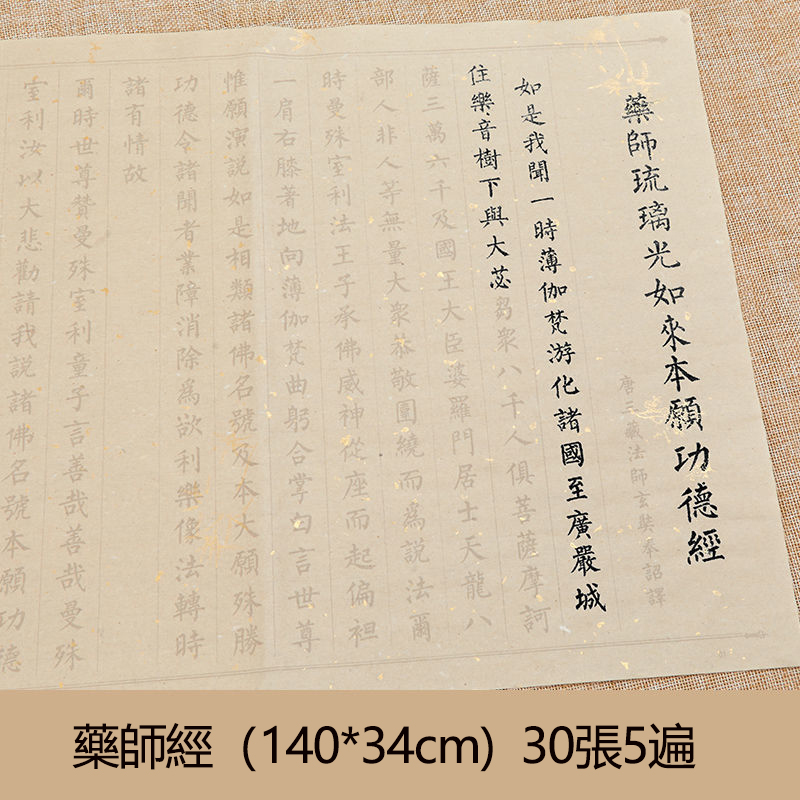 藥師琉璃光如來本願功德經
唐三藏法師玄奘奉詔譯
如是我聞一時薄伽梵游化諸國至廣嚴城
住樂音樹下與大苾芻眾八千人俱菩薩摩訶
薩三萬六千及國王大臣婆羅門居士天龍八
部人非人等無量大眾恭敬圍繞而為說法爾
時曼殊室利法王子承佛威神從座而起偏袒
一肩右膝著地向薄伽梵曲躬合掌白言世尊
惟願演說如是相類諸佛名號及本大願殊勝
功德令諸聞者業障消除為欲利樂像法轉時
諸有情故
爾時世尊贊曼殊室利童子言善哉善哉曼殊
室利汝以大悲勸請我說諸佛名號本願功德
藥師經（140*34cm）30張5遍